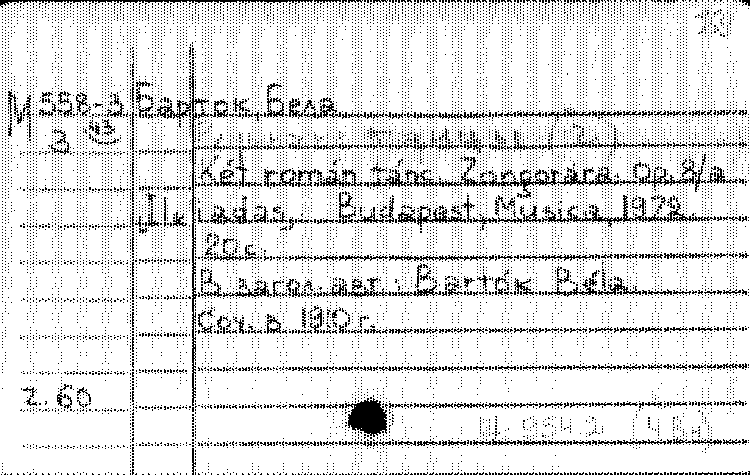 13
М 558-3 Барток, Бела
3 43
Két román tánc. Zongorára. Op. 8/a
Il kiadás, Budapest, Musica, 1972.
20 с.
В загол. авт.: Bartók Béla.
Соч. в 1910 г.
2. 60
9542